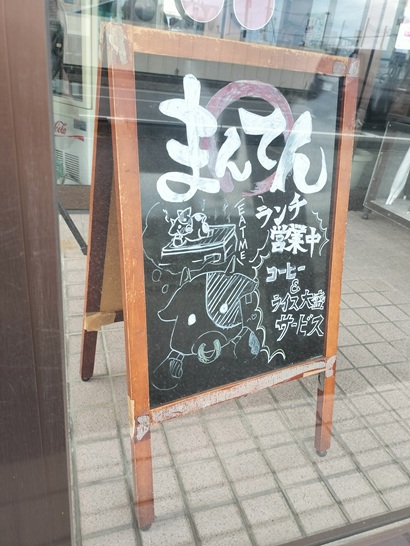 まんてん
EAT ME
ランチ
営業中
コーヒー
&
ライス大盛
サービス